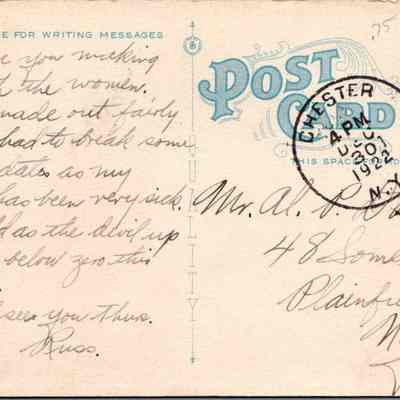 E FOR WRITING MESSAGES
e you making
the women.
made out fairly
had to break some
dates as my
has been very sick.
as the devil up
below zero this
see you Thurs.
Russ.
POST
CARD
THIS SPACE FO
CHESTER
A PM
30
1922
N.Y.
Mr. Al. P.
48 Some
Plainfie
N